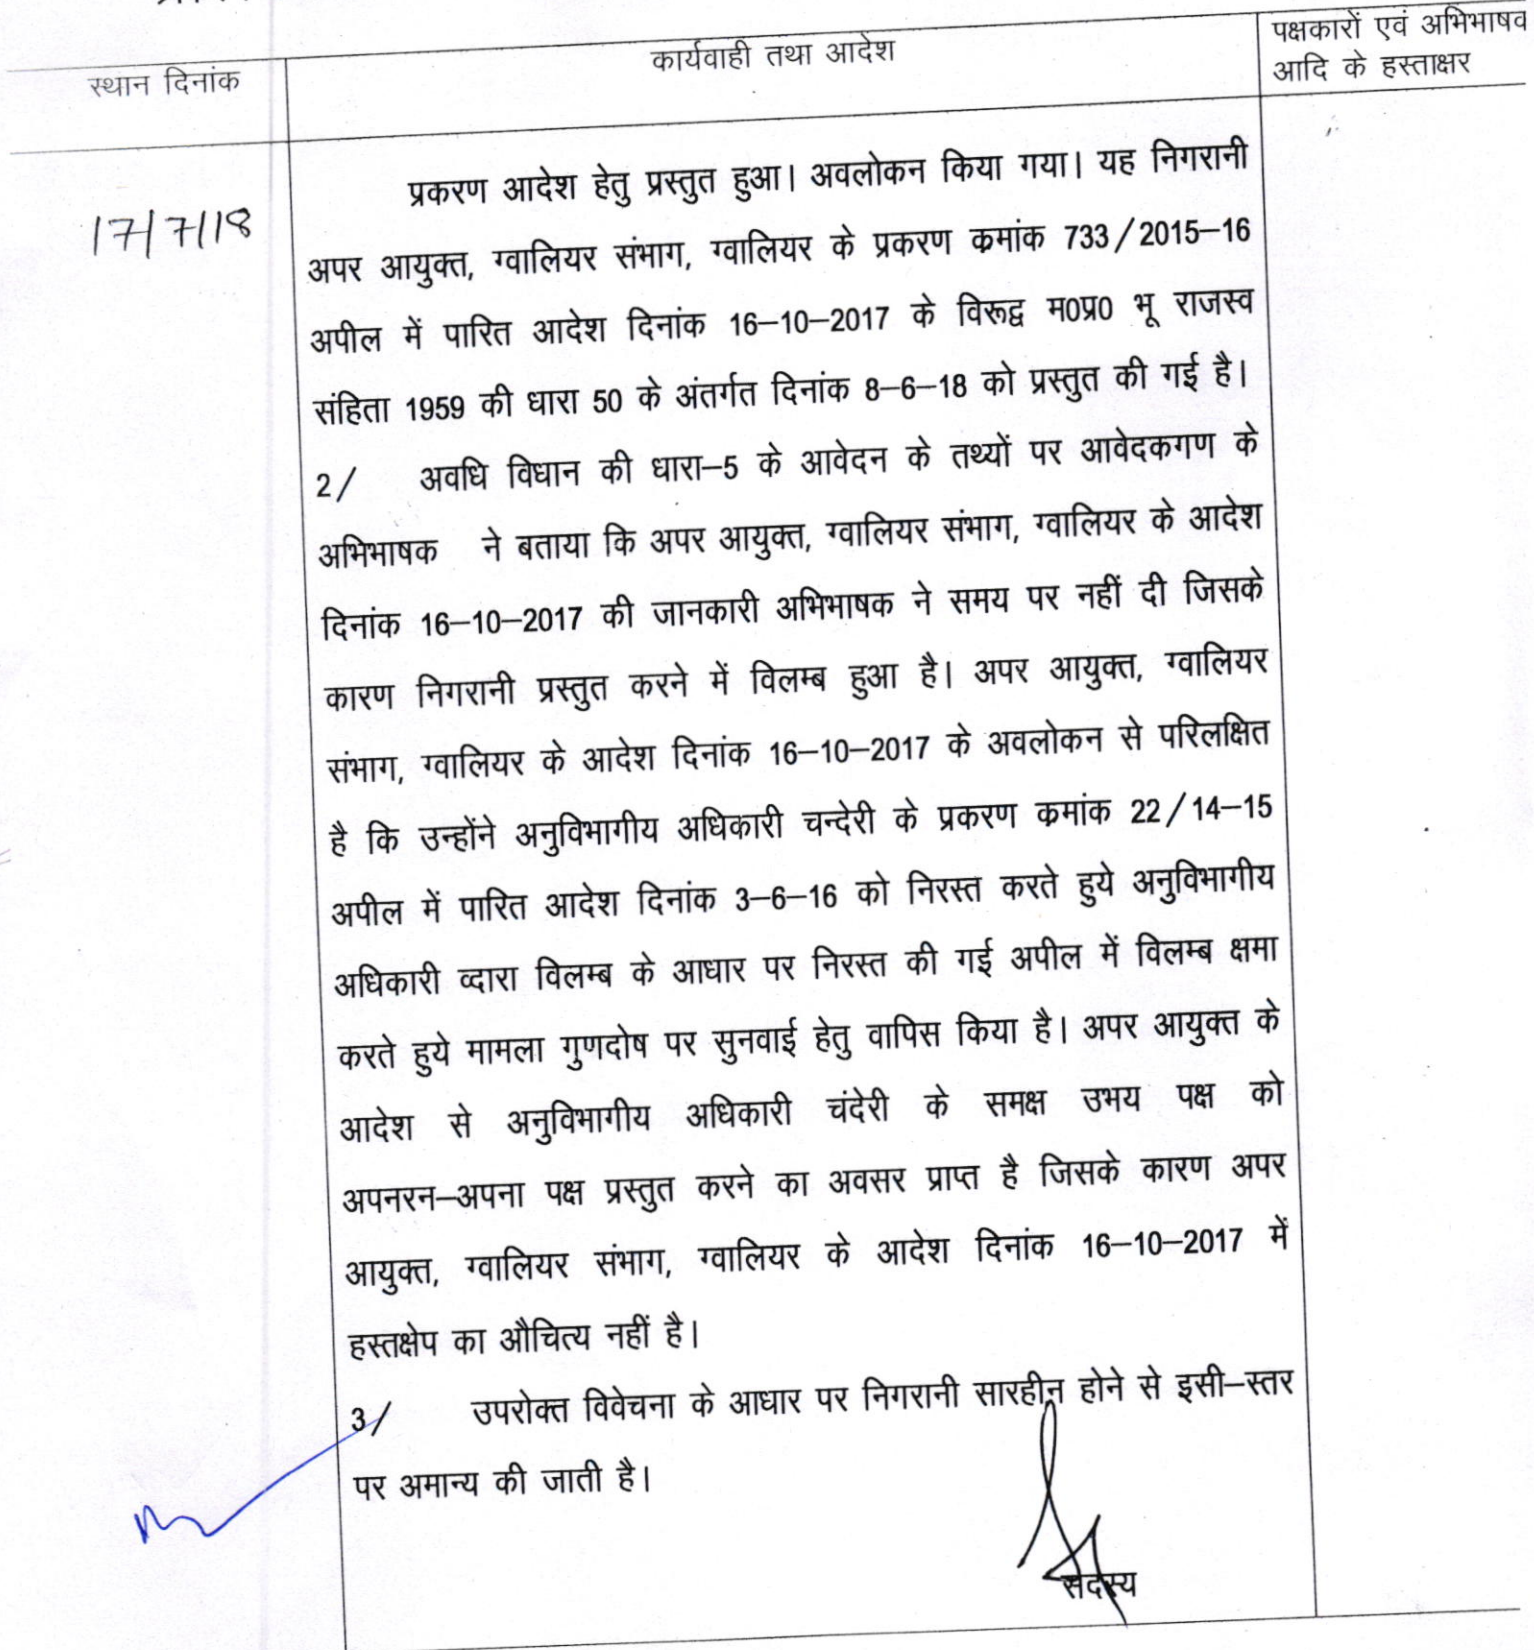 स्थान दिनांक
कार्यवाही तथा आदेश
पक्षकारों एवं अभिभाषव
आदि के हस्ताक्षर
17/7/18
प्रकरण आदेश हेतु प्रस्तुत हुआ। अवलोकन किया गया। यह निगरानी
अपर आयुक्त, ग्वालियर संभाग, ग्वालियर के प्रकरण क्रमांक 733/2015–16
अपील में पारित आदेश दिनांक 16–10–2017 के विरूद्व म0प्र0 भू राजस्व
संहिता 1959 की धारा 50 के अंतर्गत दिनांक 8–6–18 को प्रस्तुत की गई है।
2/ अवधि विधान की धारा–5 के आवेदन के तथ्यों पर आवेदकगण के
अभिभाषक ने बताया कि अपर आयुक्त, ग्वालियर संभाग, ग्वालियर के आदेश
दिनांक 16–10–2017 की जानकारी अभिभाषक ने समय पर नहीं दी जिसके
कारण निगरानी प्रस्तुत करने में विलम्ब हुआ है। अपर आयुक्त, ग्वालियर
संभाग, ग्वालियर के आदेश दिनांक 16–10–2017 के अवलोकन से परिलक्षित
है कि उन्होंने अनुविभागीय अधिकारी चन्देरी के प्रकरण क्रमांक 22/14–15
अपील में पारित आदेश दिनांक 3–6–16 को निरस्त करते हुये अनुविभागीय
अधिकारी व्दारा विलम्ब के आधार पर निरस्त की गई अपील में विलम्ब क्षमा
करते हुये मामला गुणदोष पर सुनवाई हेतु वापिस किया है। अपर आयुक्त के
आदेश से अनुविभागीय अधिकारी चंदेरी के समक्ष उभय पक्ष को
अपनरन–अपना पक्ष प्रस्तुत करने का अवसर प्राप्त है जिसके कारण अपर
आयुक्त, ग्वालियर संभाग, ग्वालियर के आदेश दिनांक 16–10–2017 में
हस्तक्षेप का औचित्य नहीं है।
3/ उपरोक्त विवेचना के आधार पर निगरानी सारहीन होने से इसी–स्तर
पर अमान्य की जाती है।
सदस्य